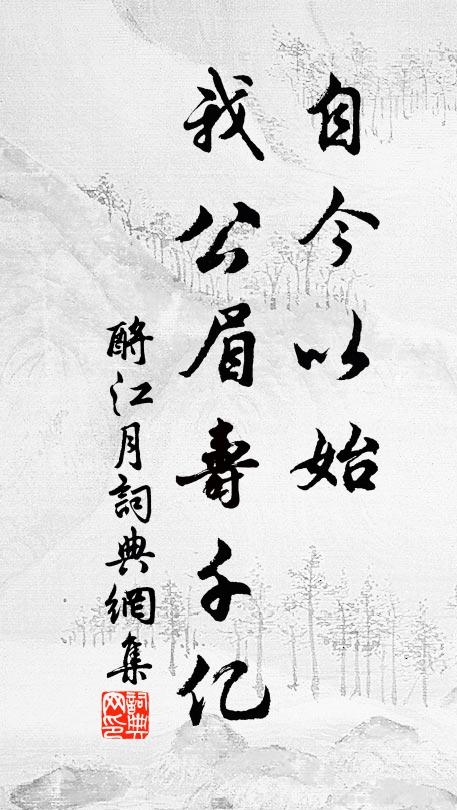 自今以始
我公眉壽千亿
酹江月詞典網集
詞典
网印